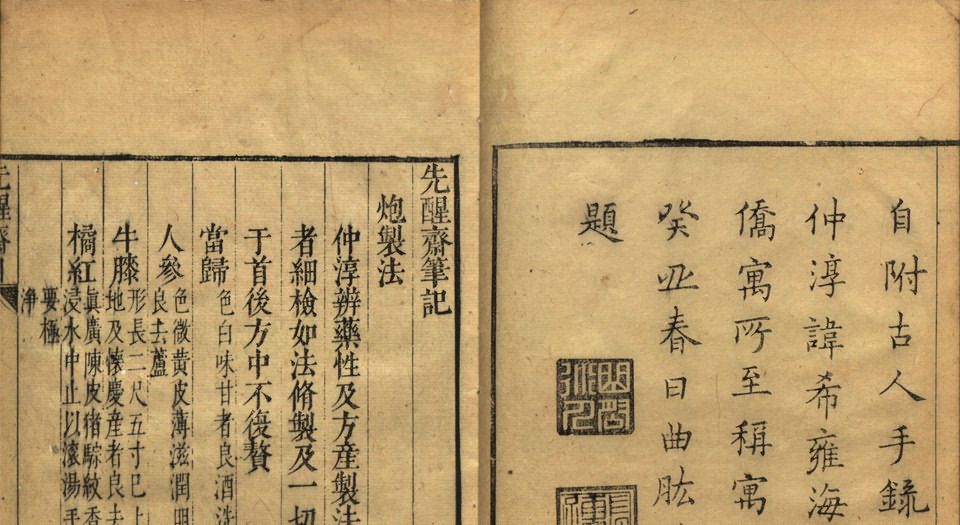 自附古人手錄
仲淳諱希雍海
僑寓所至稱寓
癸丑春日曲肱
題
先醒齋筆記
炮製法
仲淳辨藥性及方產製法
者細檢如法脩製及一切
于首後方中不復贅
當歸 色白味甘者良酒洗
人參 色微黃皮薄滋潤明
良去蘆
牛膝 形長二尺五寸已上
地及懷慶產者良去
橘紅 真廣陳皮猪騌紋香
浸水中止以滾湯手
要極
净
先醒齋